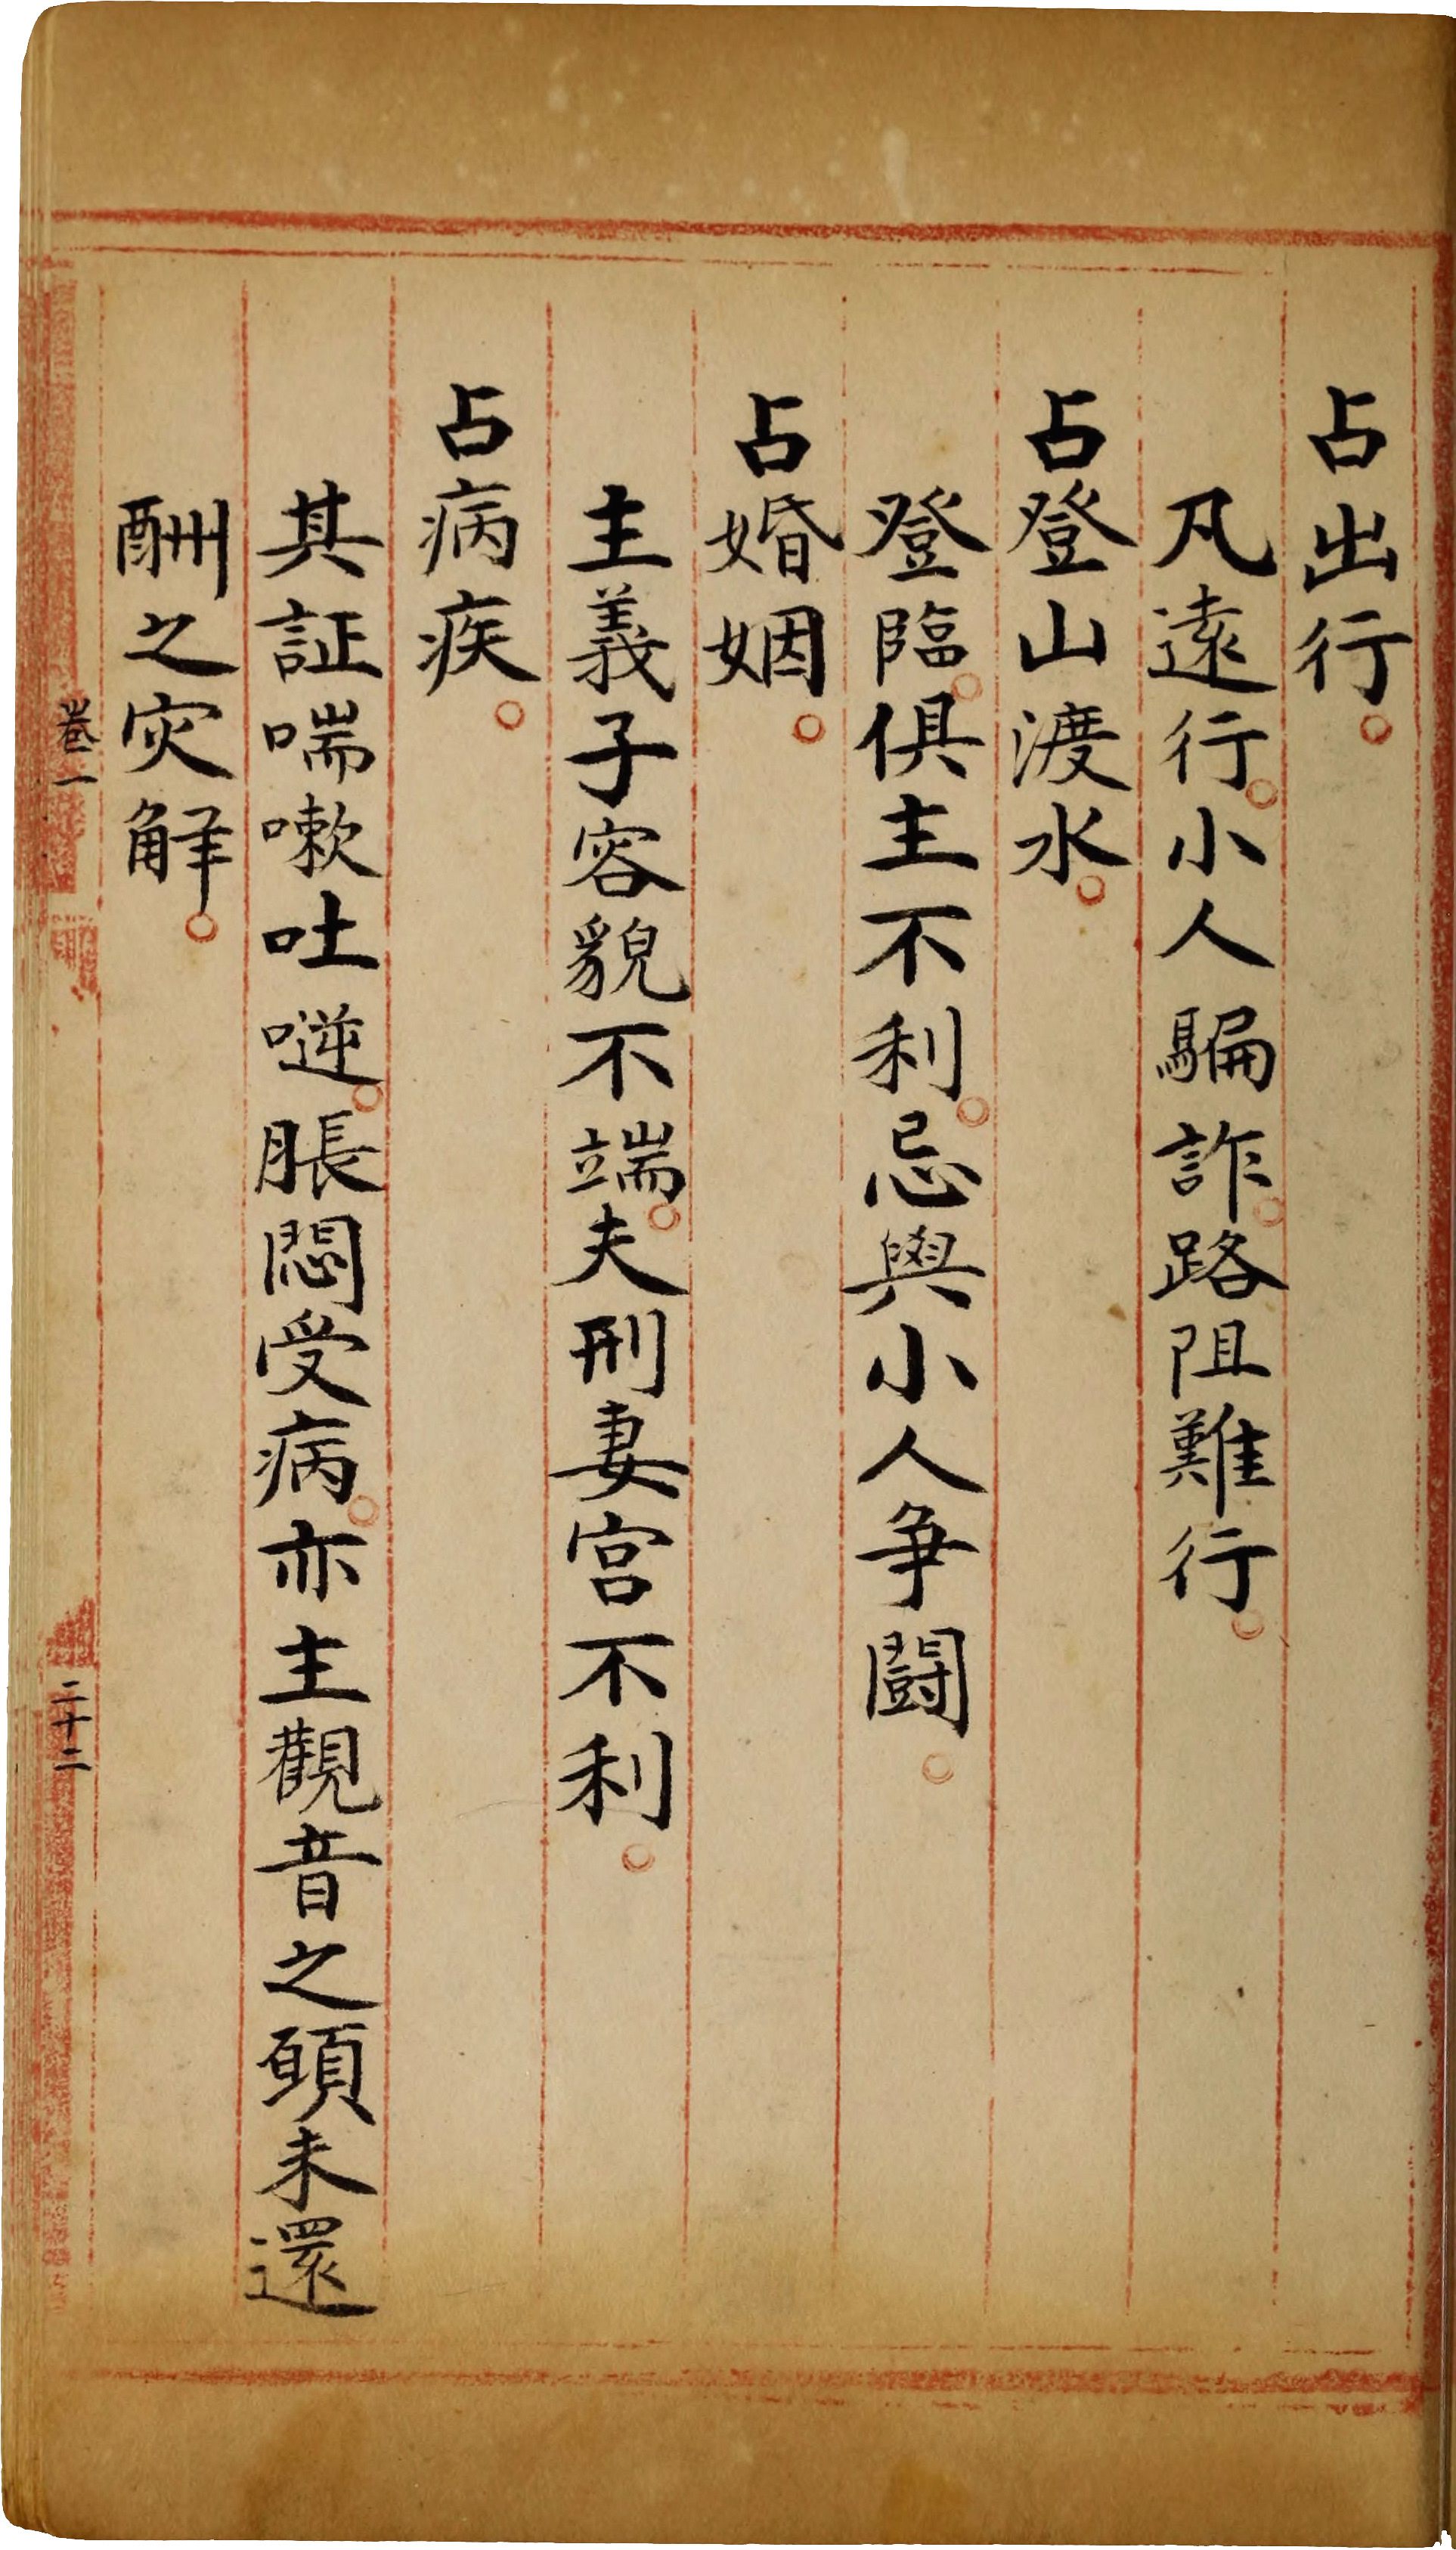 占出行。
凡遠行。小人騙詐。路阻難行。
占登山渡水。
登臨。俱主不利。忌與小人爭鬪。
占婚姻。
主義子容貌不端。夫刑妻宮不利。
占病疾。
其証喘嗽吐噬。脹悶受病。亦主觀音之願未還
酬之灾觧。
卷一
二十二